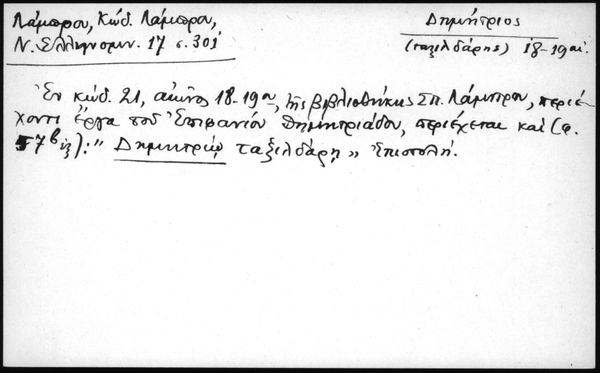 Λάμπρου, Κώδ. Λάμπρου,
Ν. Ἑλληνομν. 17 σ. 301
Δημήτριος
(ταξιλδάρης) 18-19 αἰ.
Ἐν κώδ. 21, αἰῶνος 18-19ου, τῆς βιβλιοθήκης Σπ. Λάμπρου, περιέ-
χοντι ἔργα τοῦ Ἐπιφανίου Δημητριάδου, περιέχεται καὶ (φ.
57β ἑξ): " Δημητρίῳ ταξιλδάρῃ „ ἐπιστολή.